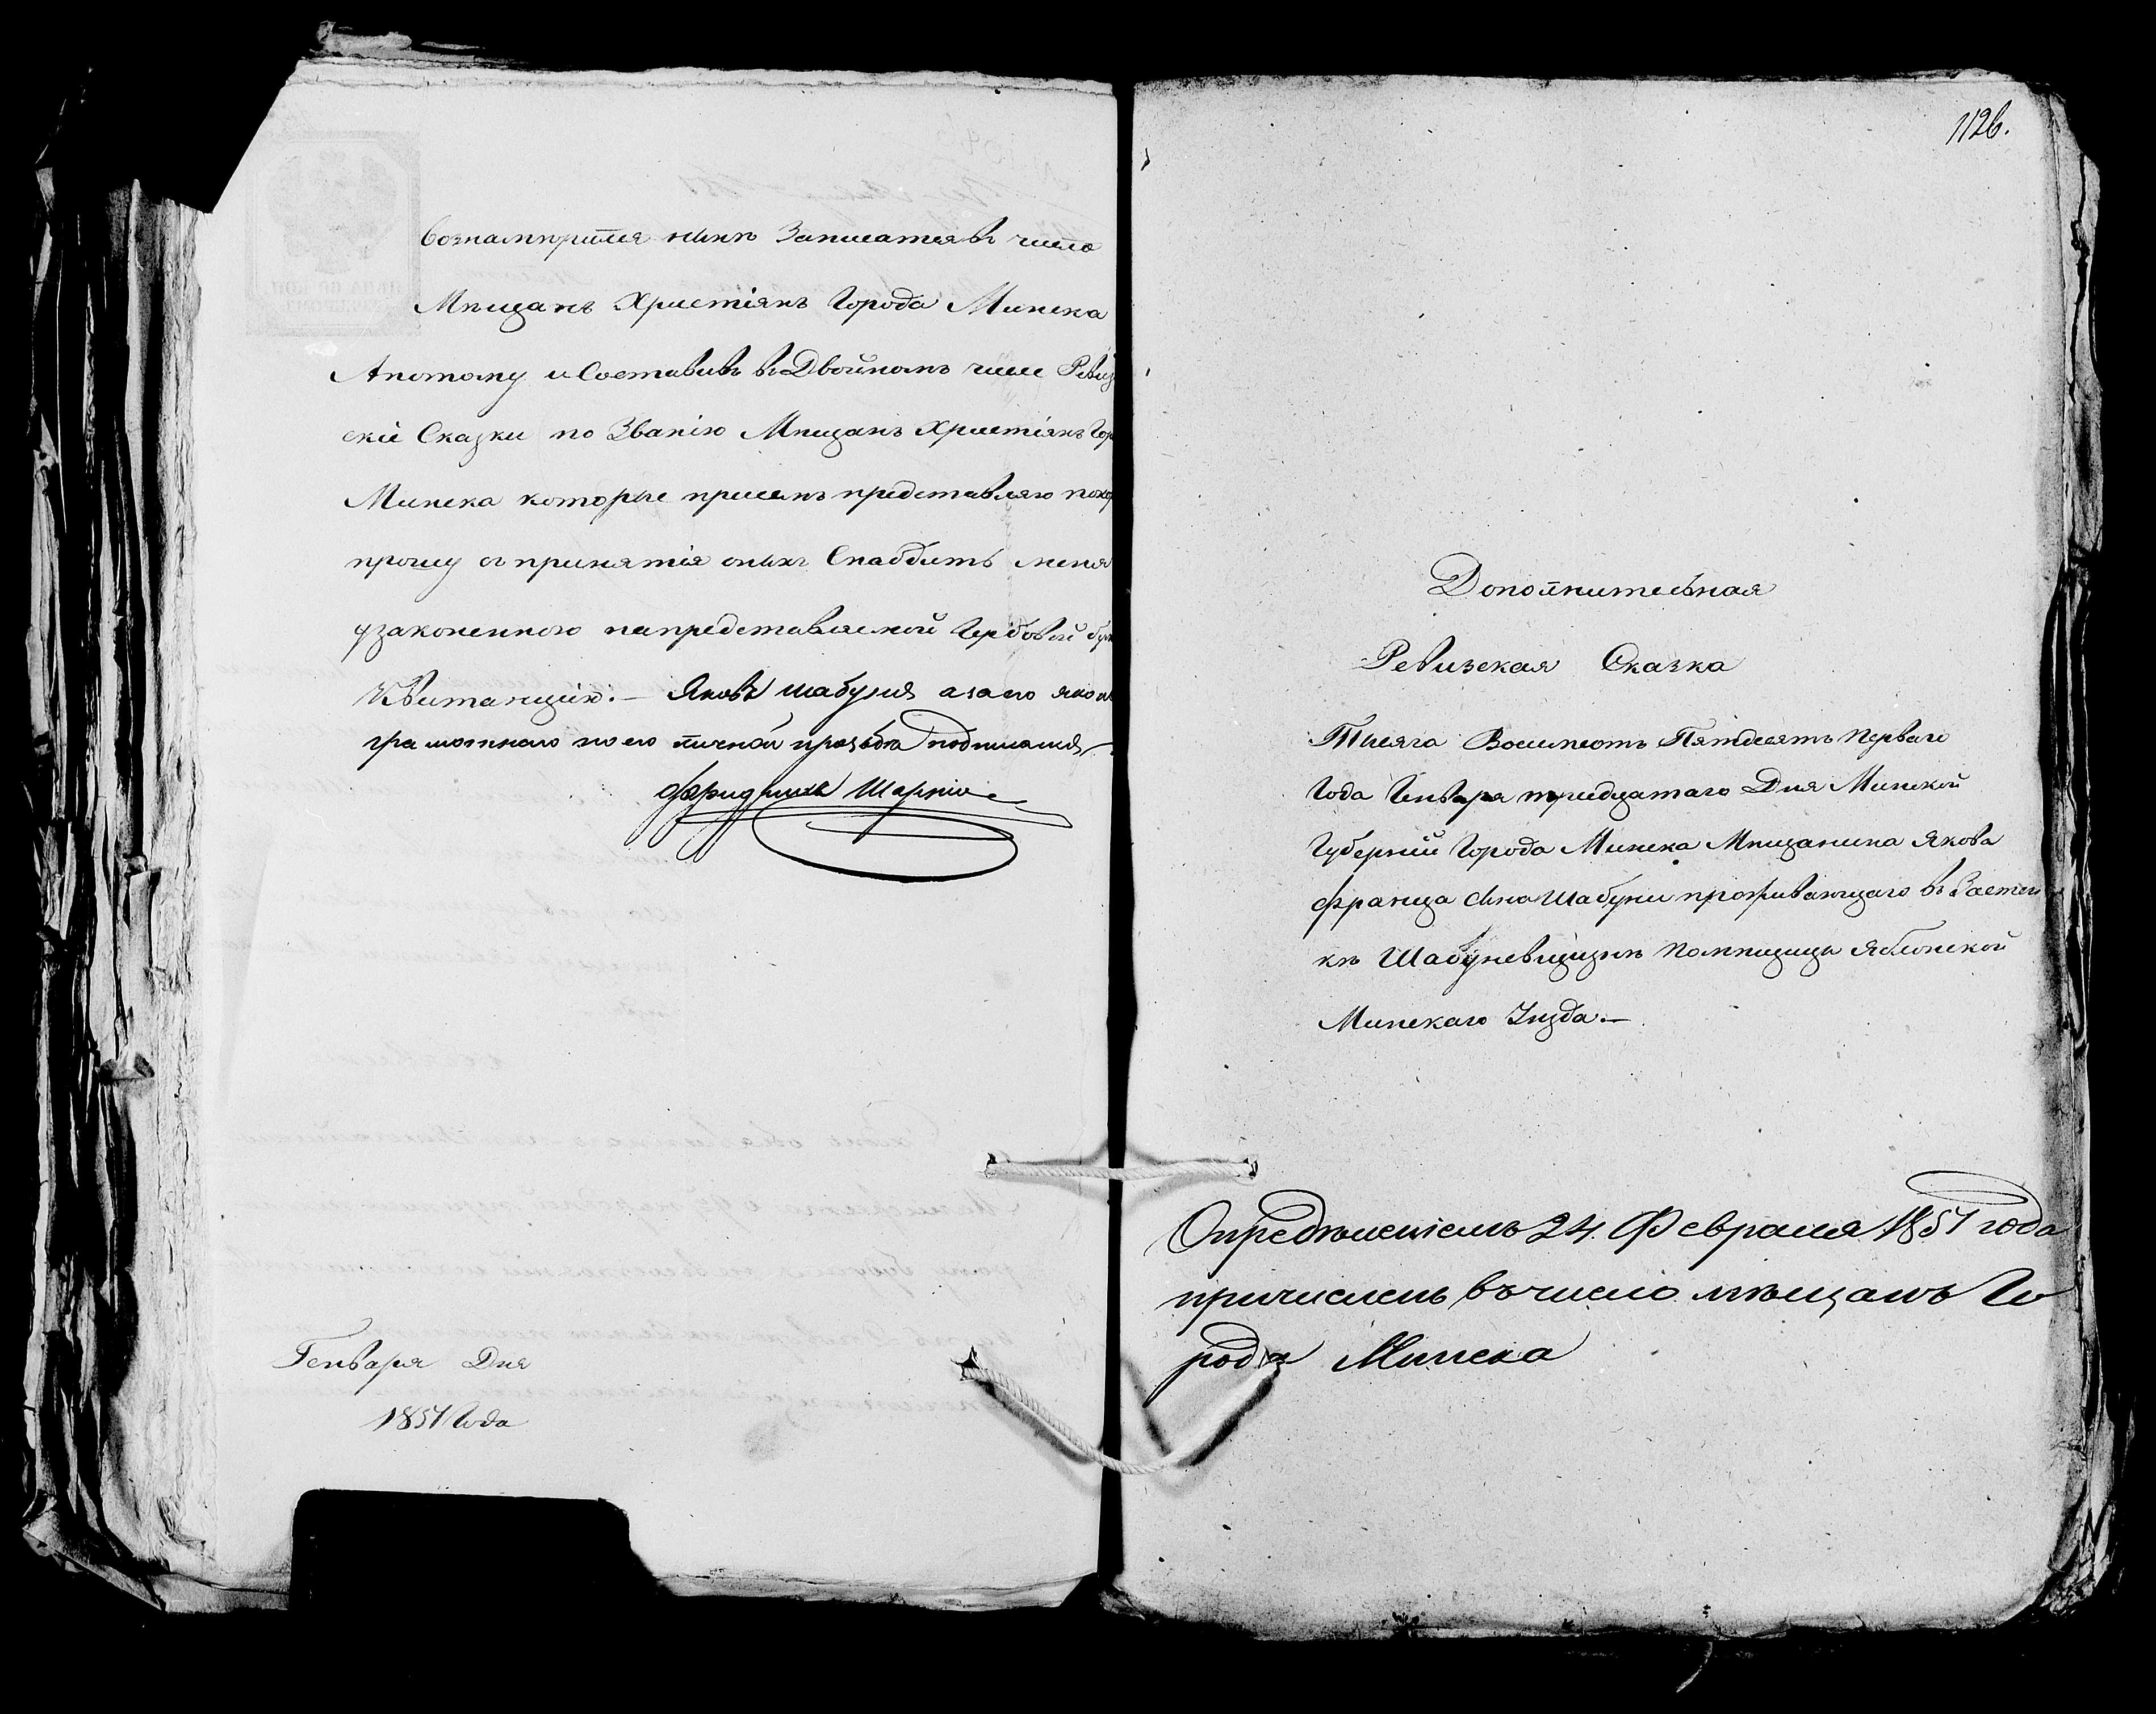 вознамѣрился нынѣ Записатся въ число
Мѣщанъ Христіянъ Города Минска
Апотому и Составивъ въ Двойномъ числе Ревиз
скіе Сказки по Званію Мѣщанъ Христіянъ Гор
Минска которые присемъ представляю покор
прошу о принятія оныхъ Снабдить меня
узаконенною напредставляемой Гербовой бум
Квитанцію.— Яковъ шабуня азаего яко не
грамотнаго по его личной прозьбѣ подписался
Шарпіо
Генваря Дня
1851 Года
1126.
Дополнительная
Ревизская Сказка
Тысяга Восимсотъ Пятдесятъ Перваго
Года Генваря тридцатаго Дня Минской
Губерніи Города Минска Мѣщанина Якова
Франца сына Шабуни проживающаго въ Застен
кѣ Шабуневщизнѣ Помѣщицы Яблонской
Минскаго Уѣзда.—
Опредѣленіемъ 24. Февраля 1851 года
причисленъ въ число мѣщанъ Го
рода Минска